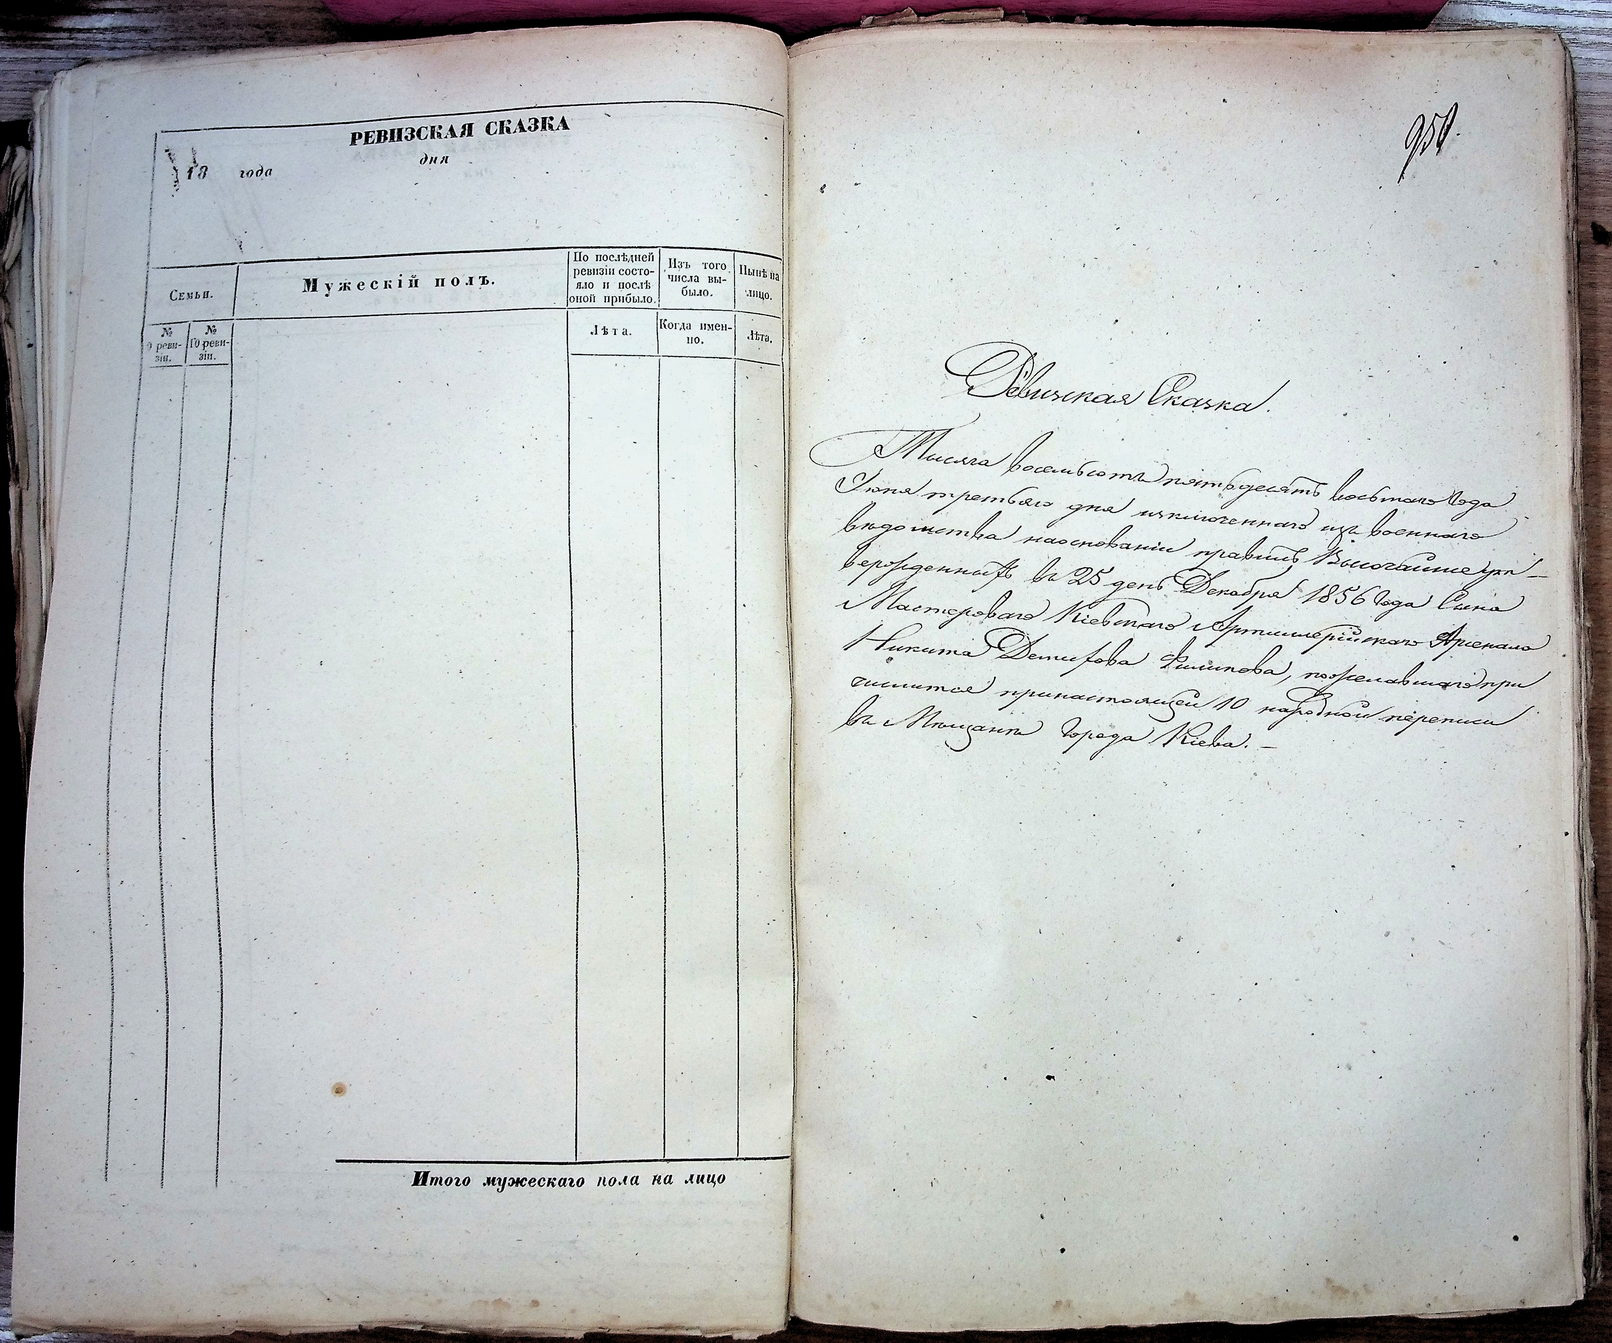 РЕВИЗСКАЯ СКАЗКА
18 года дня
Семьи.
Мужескій полъ.
По послѣдней
ревизіи состо-
яло и послѣ
оной прибыло.
Изъ того
числа вы-
было.
Нынѣ на
лицо.
№
9 реви-
зіи.
№
10 реви-
зіи.
Лѣта.
Когда имен-
но.
Лѣта.
Итого мужескаго пола на лицо
Ревизская Сказка.
Тысяча восемьсотъ пятьдесятъ восьмаго года
Іюня третьяго дня изключеннаго изъ военнаго
вѣдомства наоснованіи правилъ Высочайше ут-
вержденныхъ въ 25 день Декабря 1856 года Сына
Мастероваго Кіевскаго Артиллерійскаго Арсенала
Никита Филипова, пожелавшаго при
числится принастоящей 10 народной переписи
въ Мѣщане города Кіева. —